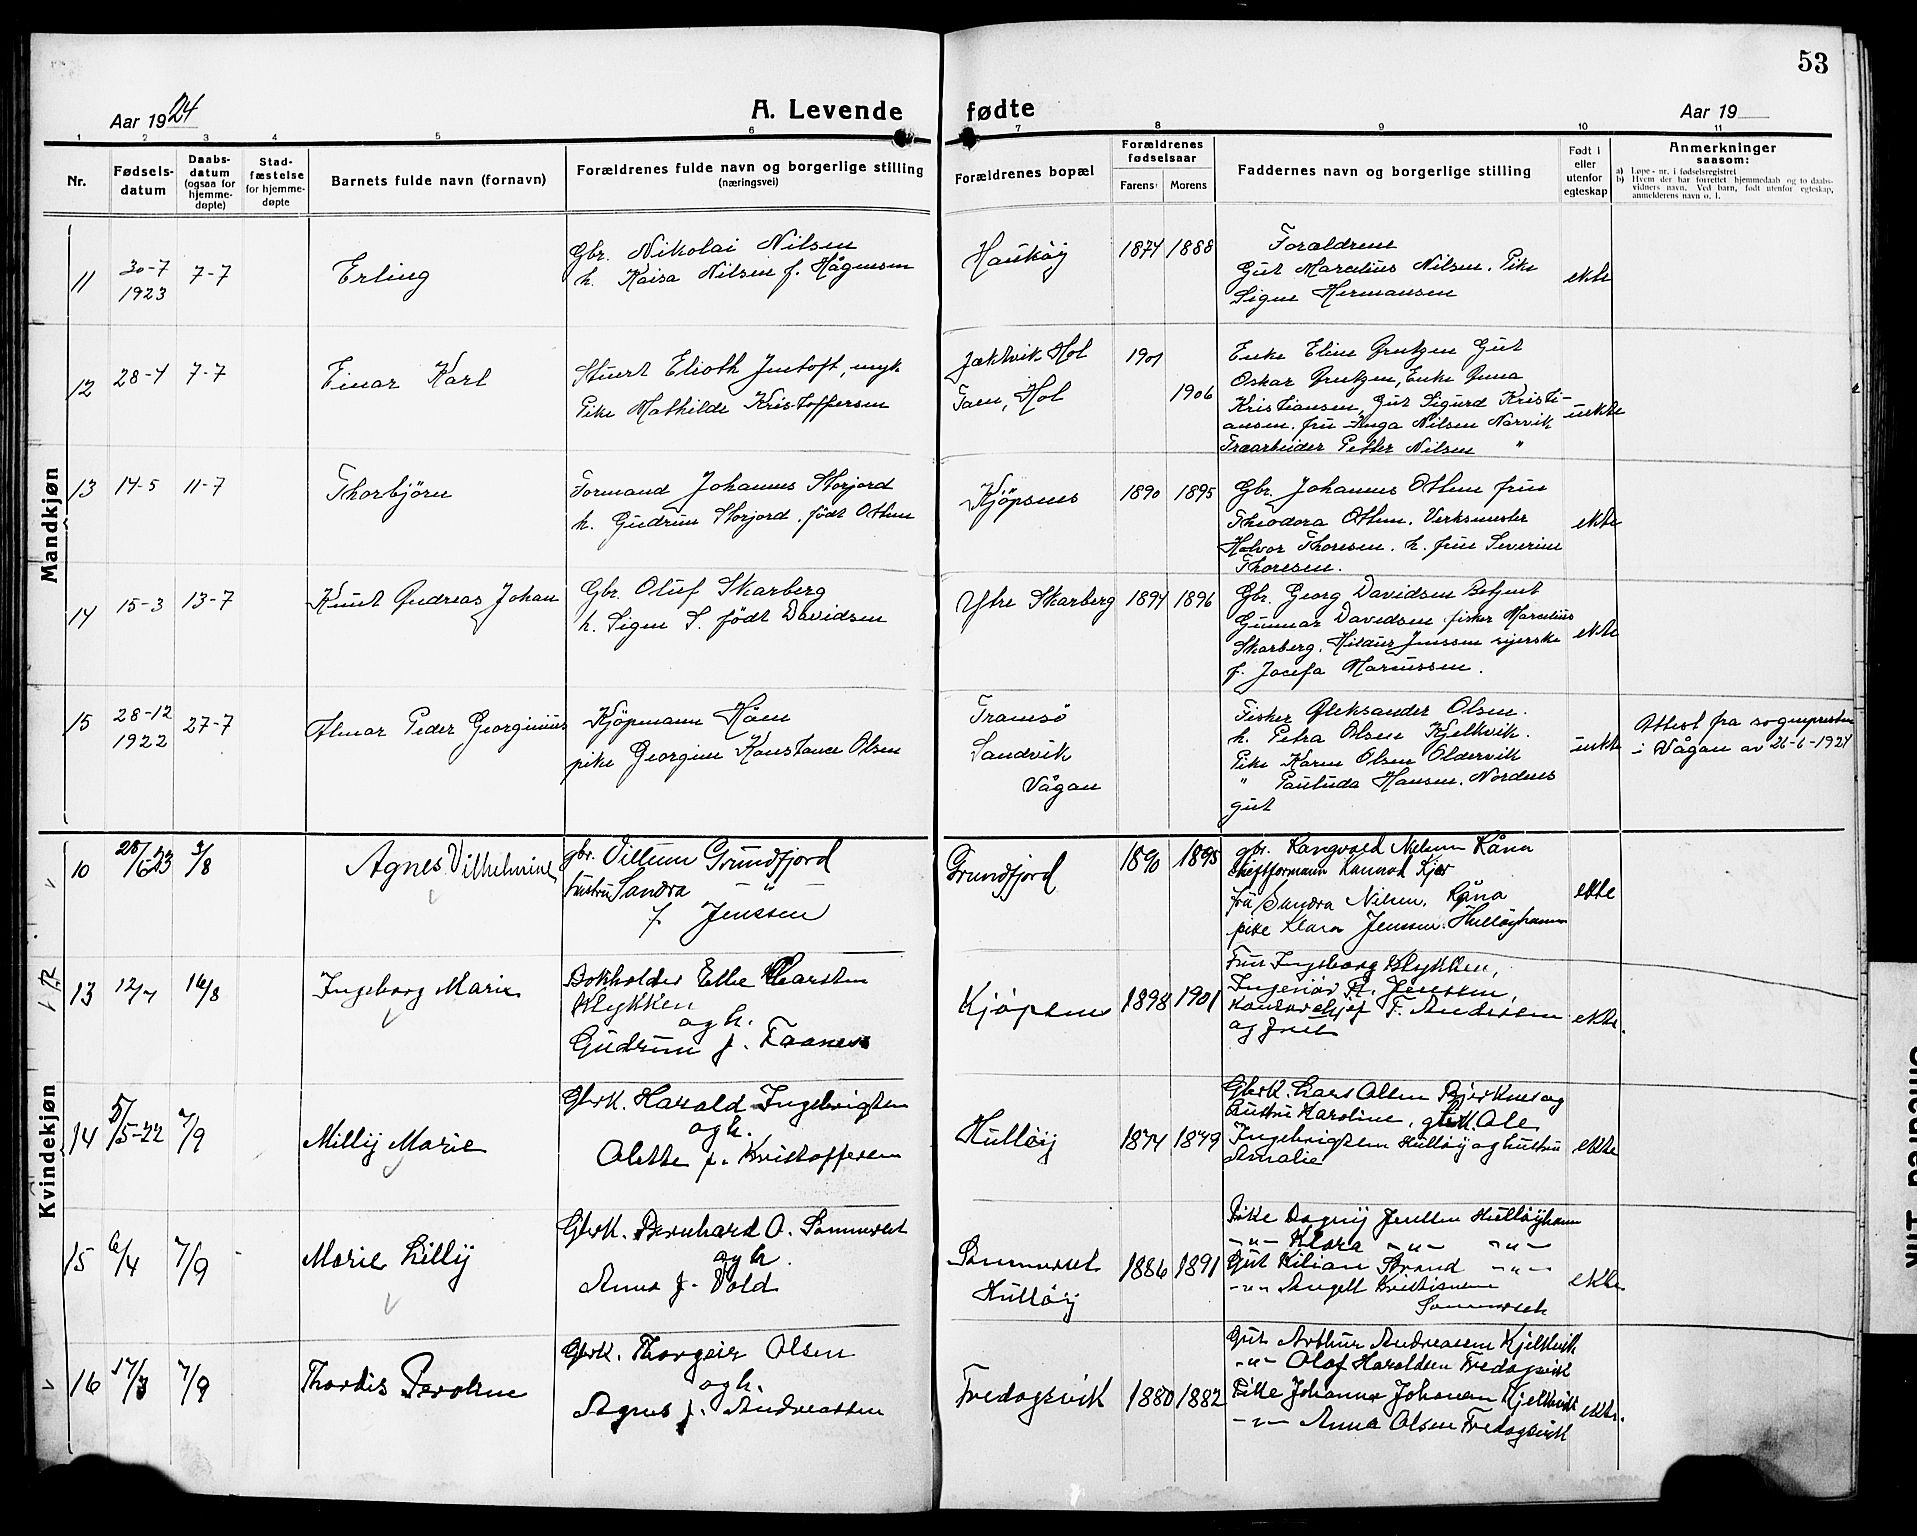 53
Aar 1924
A. Levende fødte
Aar 19
1 2 3 4 5 6 7 8 9 10 11
Nr.
Fødsels-
datum
Daabs-
datum
(ogsaa for
hjemme-
døpte)
Stad-
fæstelse
for hjemme-
døpte
Barnets fulde navn (fornavn)
Forældrenes fulde navn og borgerlige stilling
(næringsvei)
Forældrenes bopæl
Forældrenes
fødselsaar
Farens Morens
Faddernes navn og borgerlige stilling
Født i
eller
utenfor
egteskap
Anmerkninger
saasom:
a) Løpe-nr. i fødselsregistret
b) Hvem der har forrettet hjemmedaab og to daabs-
vidners navn. Ved barn, født utenfor egteskap,
anmelderens navn o. l.
Mandkjøn
11
30-7
1923
7-7
Erling
Gbr. Nikolai Nilsen
h. Kaisa Nilsen f. Hågensen
Haukøy
1874 1888
Foraldrene
Gut Marcelius Nilsen. Pike
Signe Hermansen
ekte
12
28-4
7-7
Einar Karl
Stuert Elioth Jentoft, ungk
Pike Mathilde Kristoffersen
Jaktvik Hol
Taen, Hol
1901
1906
Enke Eline Gut
Oskar Enke Anna
Kristiansen, Gut Sigurd Kristi-
ansen. fru Inga Nilsen Narvik
Traarbeider Petter Nilsen "
uekte
13
14-5
11-7
Thorbjörn
Formand Johannes Storjord
h. Gudrun Storjord. født Ottem
Kjöpsnes
1890 1895
Gbr. Johannes Ottem frue
Theodora Ottem. Verksmester
Halvor Thoresen. h. frue Severine
Thoresen.
ekte
14
15-3
13-7
Knut Andreas Johan
Gbr. Oluf Skarberg
h. Signe S. født Davidsen
Ytre Skarberg
1894 1896
Gbr. Georg Davidsen Betjent
Gunnar Davidsen. fisker Marcelius
Skarberg. Hildur Jenssen syerske
f. Josefa Mariussen.
ekte
15
28-12
1922
27-7
Almar Peder Georginius
Kjöpmann Håen
pike Georgine Konstance Olsen
Tromsö
Sandvik
Vågan
Fisker Aleksander Olsen.
h. Petra Olsen Kjelkvik.
Pike Karen Olsen Oldervik
" Paulinda Hansen. Nordnes
gut
uekte
Attest fra sognepresten
i Vågan av 26-6-1924
Kvindekjøn
10
3/8
Agnes Vilhelmine
gbr. Villum Grundfjord
hustru Sandra
f. Jenssen
Grundfjord
1890 1895
gbr. Rangvald Nielsen Råna
skiftformann Kannot Kjær
fru Sandra Nilsen, Råna
pike Klara Jenssen. Hulløyhamn
ekte
13
12/7
16/8
Ingeborg Marie
Bokholder Ebbe Carsten
Klykken
og h.
Gudrun f. Faanes
Kjöpsnes
1898 1901
Fru Ingeborg Klykken,
Ingeniør R. Jenssen,
Kontorchef F. Andersen
og frue
ekte.
14
5/5-22
7/9
Milly Marie
Gbrk. Harald Ingebrigtsen
og h.
Alette f. Kristoffersen
Hulløy
1874 1879
Gbrk. Lars Olsen Bjerknes og
hustru Karoline, gbrk. Ole
Ingebrigtsen Hulløy og hustru
Amalie
ekte
15
6/4
7/9
Marie Lilly
Gbrk. Bernhard O. Sommerset
og h.
Anna f. Vold
Sommerset
Hulløy
1886 1891
Pike Dagny Jensen Hulløyhamn
-"- Klara -"- -"-
Gut Kilian Strand -"-
-"- Angell Kristiansen
Sommerset
ekte.
16
17/3
7/9
Thordis Peroline
Gbrk. Thorgeir Olsen
og h.
Agnes f. Andreassen
Fredagsvik
1880 1882
Gut Arthur Andreassen Kjelkvik
-"- Olaf Haraldsen Fredagsvik
Pike Johanna Johansen Kjelkvik
-"- Anna Olsen Fredagsvik
ekte.